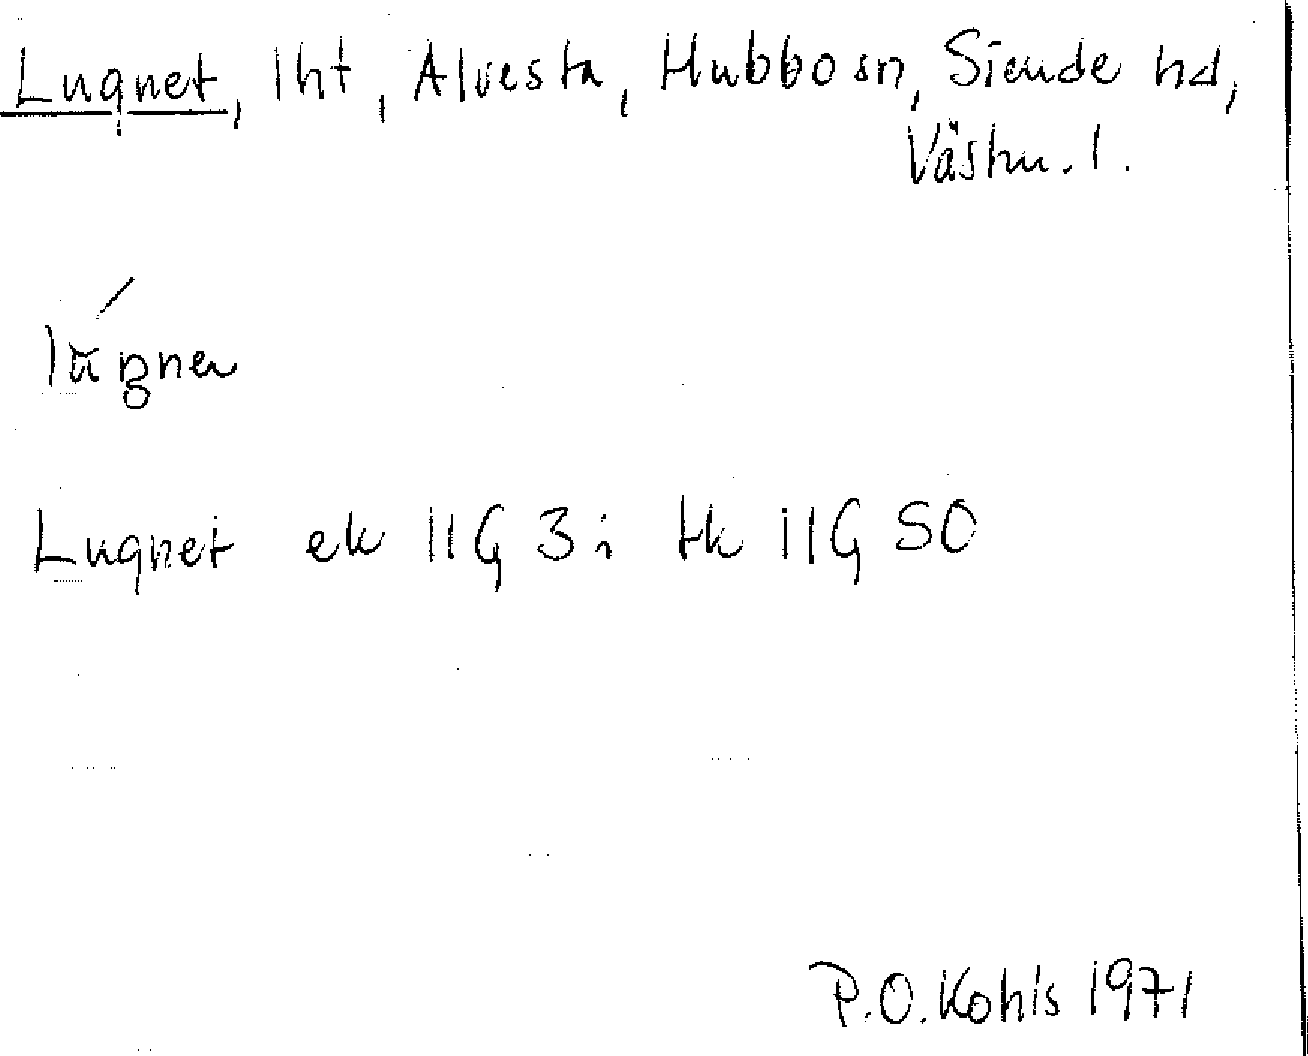 Lugnet, lht, Alvesta, Hubbo sn, Siende hd,
Västm. l.
Lugnet ek 11G 3i tk 11G SO
P.O. Kohls 1971